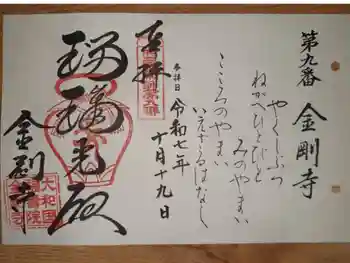 第九番 金剛寺
やくしぶつ
ねがへひとびと
みのやまい
こころのやまい
いえざるはなし
奉拝
参拝日 令和七年
十月十九日
瑠璃光殿
金剛寺